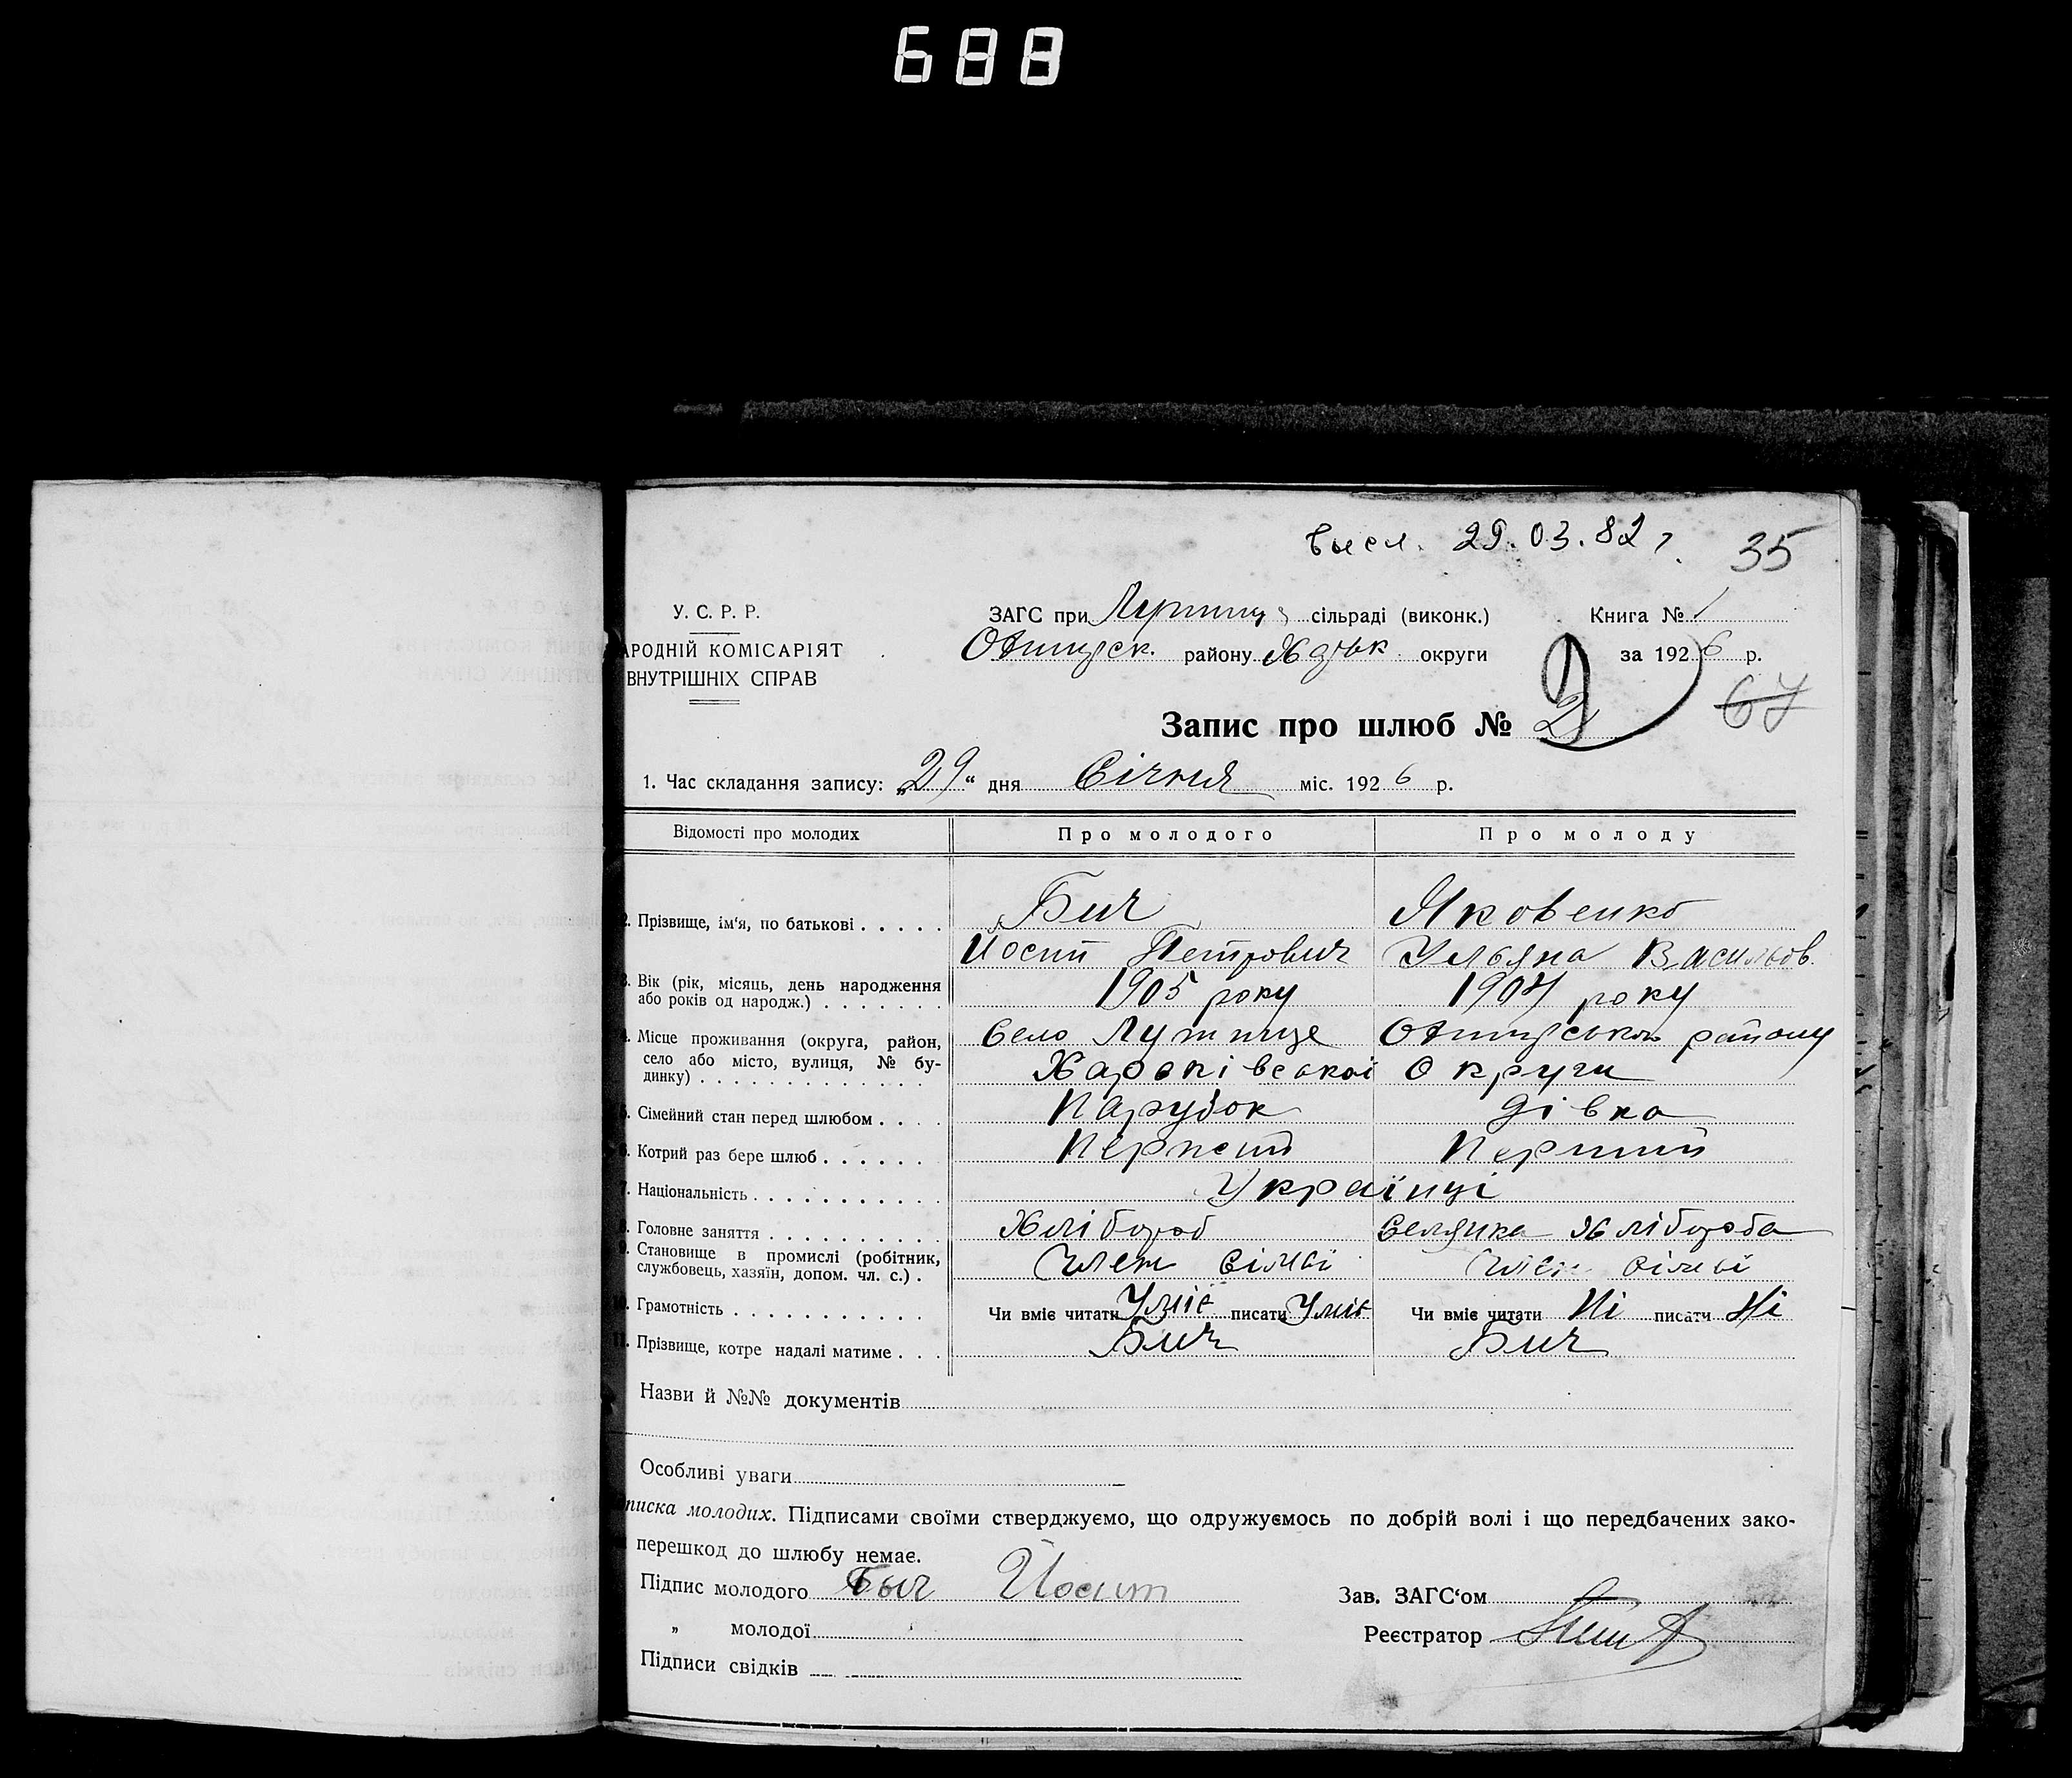 688
высл. 29.03.82 г. 35
У. С. Р. Р.
АРОДНІЙ КОМІСАРІЯТ
ВНУТРІШНІХ СПРАВ
ЗАГС при сільраді (виконк.)
району округи
Книга № 1
за 1926 р.
67
Запис про шлюб № 2
1. Час складання запису: „29“ дня Січня міс. 1926 р.
Відомості про молодих Про молодого Про молоду
2. Прізвище, ім'я, по батькові Бич Яковенко
Йосип Петрович Ульяна Васильов.
3. Вік (рік, місяць, день народження
або років од народж.) 1905 року 1904 року
4. Місце проживання (округа, район,
село або місто, вулиця, № бу-
динку)
Село Лутище району
Харьківської Округи
5. Сімейний стан перед шлюбом Парубок Дівка
6. Котрий раз бере шлюб Перший Перший
7. Національність Українці
8. Головне заняття Хлібороб Селянка Хлібороба
9. Становище в промислі (робітник,
службовець, хазяїн, допом. чл. с.) Член сімьї Член сімьї
10. Грамотність Чи вміє читати Уміє писати Уміє Чи вміє читати Ні писати Ні
11. Прізвище, котре надалі матиме Бич Бич
Назви й №№ документів
Особливі уваги
писка молодих. Підписами своїми стверджуємо, що одружуємось по добрій волі і що передбачених зако-
перешкод до шлюбу немає.
Підпис молодого Быч Йосип
„ молодої
Підписи свідків
Зав. ЗАГС'ом
Реєстратор